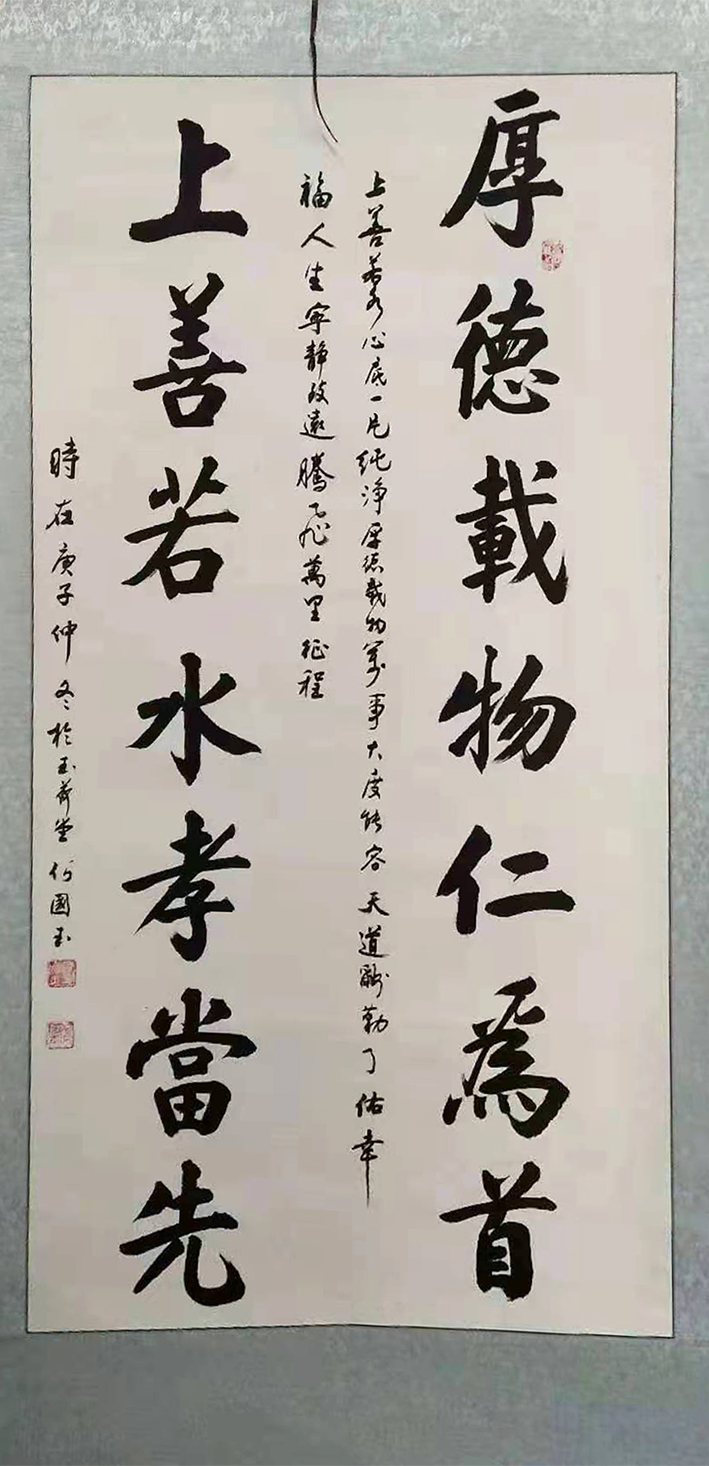 厚德載物仁爲首
上善若水心底一片純净厚德載物萬事大度能容天道酬勤了佑幸
福人生寧静致遠騰飛萬里征程
上善若水孝當先
時在庚子仲冬於玉荷堂何國玉